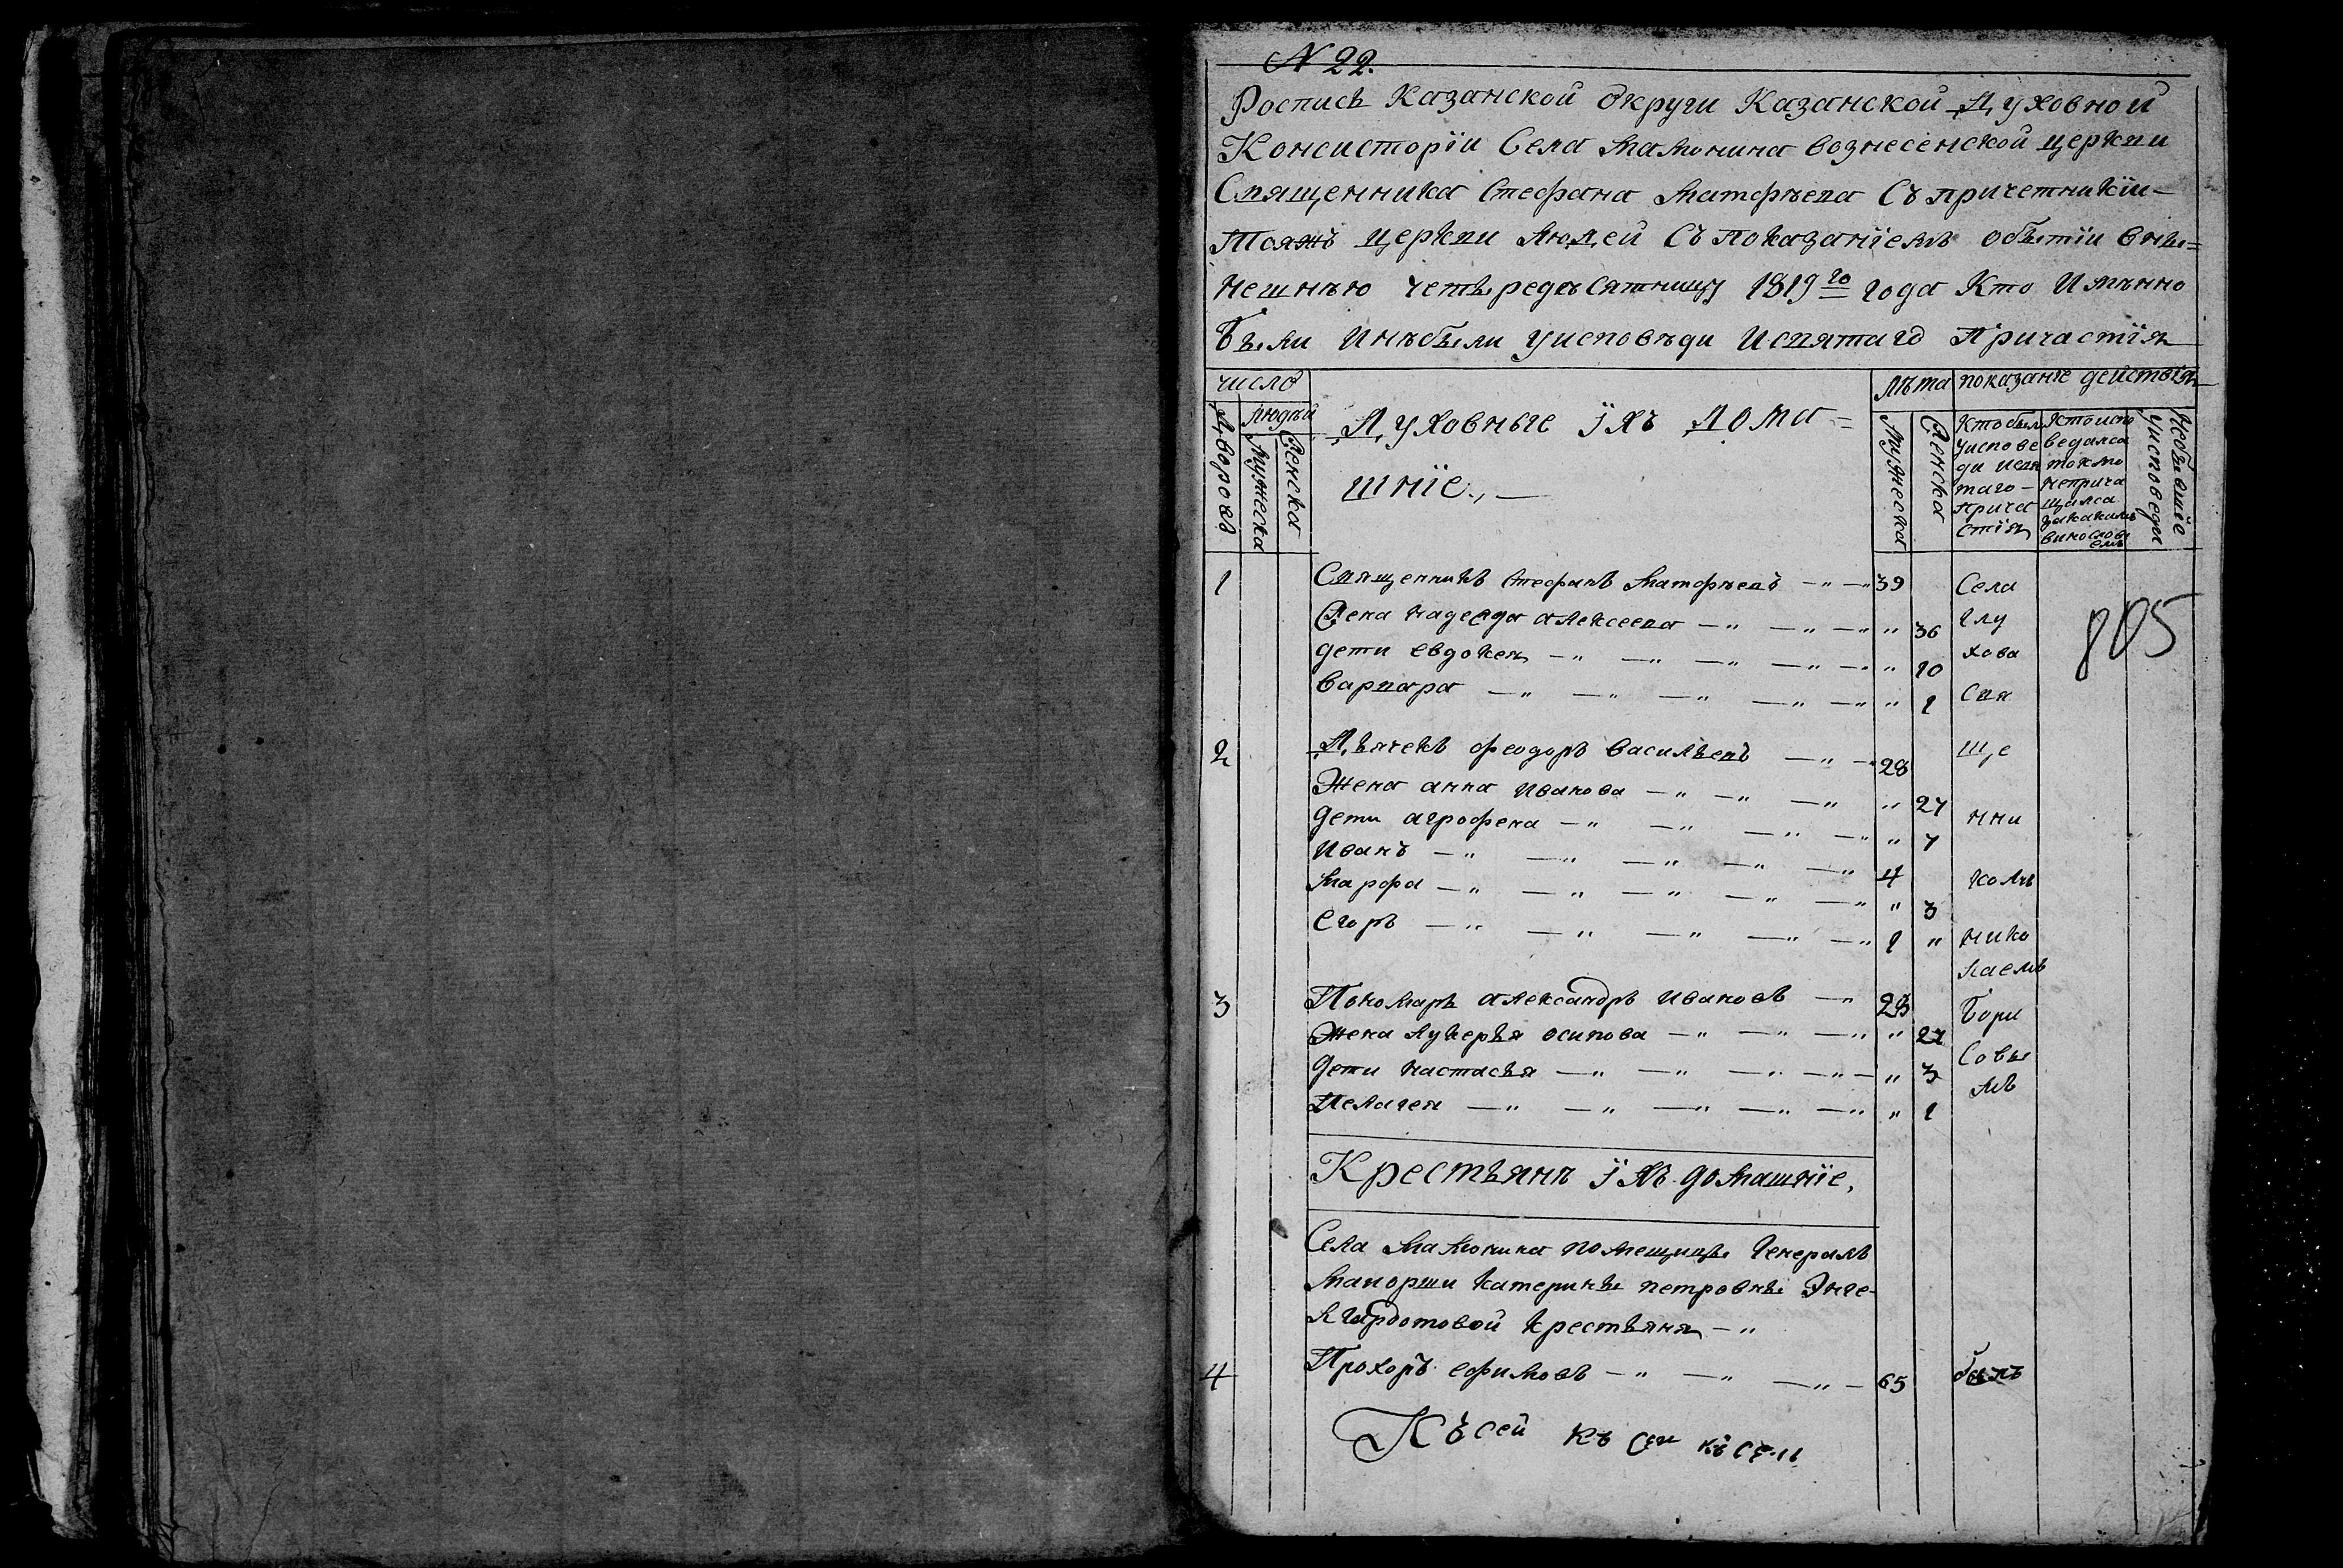 N 22.
Роспись Казанской округи Казанской Духовной
Консисторіи Села Мамонина вознесенской церкви
Священника Стефана Матфѣева Съ причетники
Тояжъ церкви людей Съ показанїемъ обытїи вны=
нешнѣю четыредѣсятницу 1819 го года Кто Имѣнно
Были Инѣбыли Уисповѣди Исвятаго Причастїя
число
лѣта показанїе действїя
Дворовъ
людѣй
Мужеска
Женска
Духовные їхъ дома=
шнїе.,
Мужеска
Женска
Кто был
уиспове
ди исвя
таго
прича
стїя
Кто испо
ведался
токмо
неприча
щался
закакимъ
винослові
емъ
Небывшїе
уисповеди
1 Священникъ Стефанъ Матфѣевъ 39 Села
Жена надежда алексеева 36 глу
дети евдокея 10 хова
варвара 1 Свя
805
2 Дьячекъ феодоръ васильевъ 28 ще
Жена анна иванова 27 нни
дети агрофена 7
иванъ 4 комъ
Марфа 3
егоръ 1 нико
лаемъ
3 Пономарь александръ ивановъ 23 Бори
Жена лукерья осипова 22 Совы
дети настасья 3 мъ
Пелагея 1
Крестьянъ їхъ домашнїе,
Села Мамонина помещицы генералъ
Маиорши катерины петровны Энге
лгардотовой крестьяня
4 Прохоръ ефимовъ 65 былъ
Къ сей къ сеи къ се и